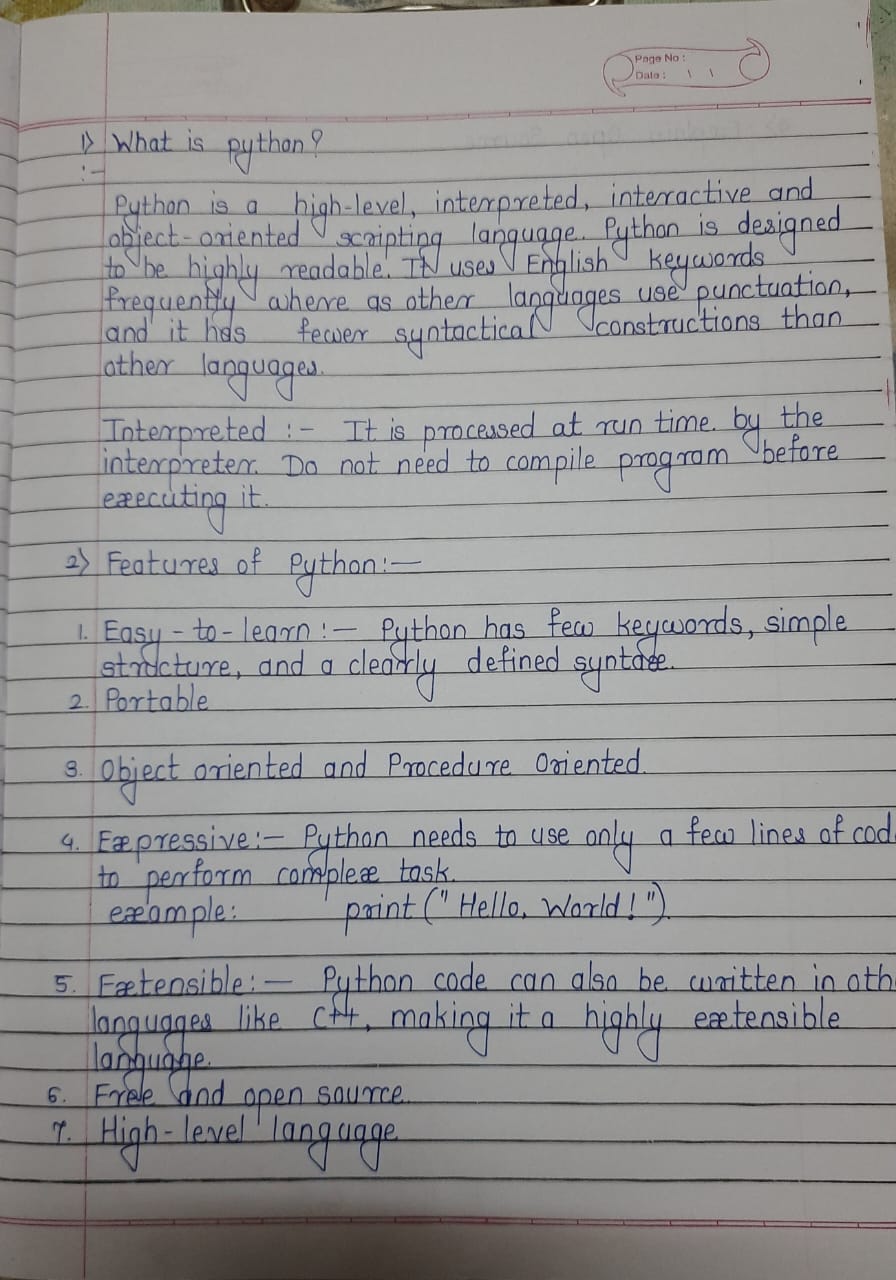 Page No :
Date : \ \
1) What is python?
:-
Python is a high-level, interpreted, interactive and
object-oriented scripting language. Python is designed
to be highly readable. It uses English keywords
frequently where as other languages use punctuation,
and it has fewer syntactical constructions than
other languages.
Interpreted :- It is processed at run time. by the
interpreter. Do not need to compile program before
executing it.
2) Features of Python:-
1. Easy-to-learn :- Python has few keywords, simple
structure, and a clearly defined syntax.
2. Portable
3. Object oriented and Procedure Oriented.
4. Expressive:- Python needs to use only a few lines of cod
to perform complex task.
example: print ("Hello, World!").
5. Extensible:- Python code can also be written in oth
languages like C++, making it a highly extensible
language.
6. Free and open source.
7. High-level language